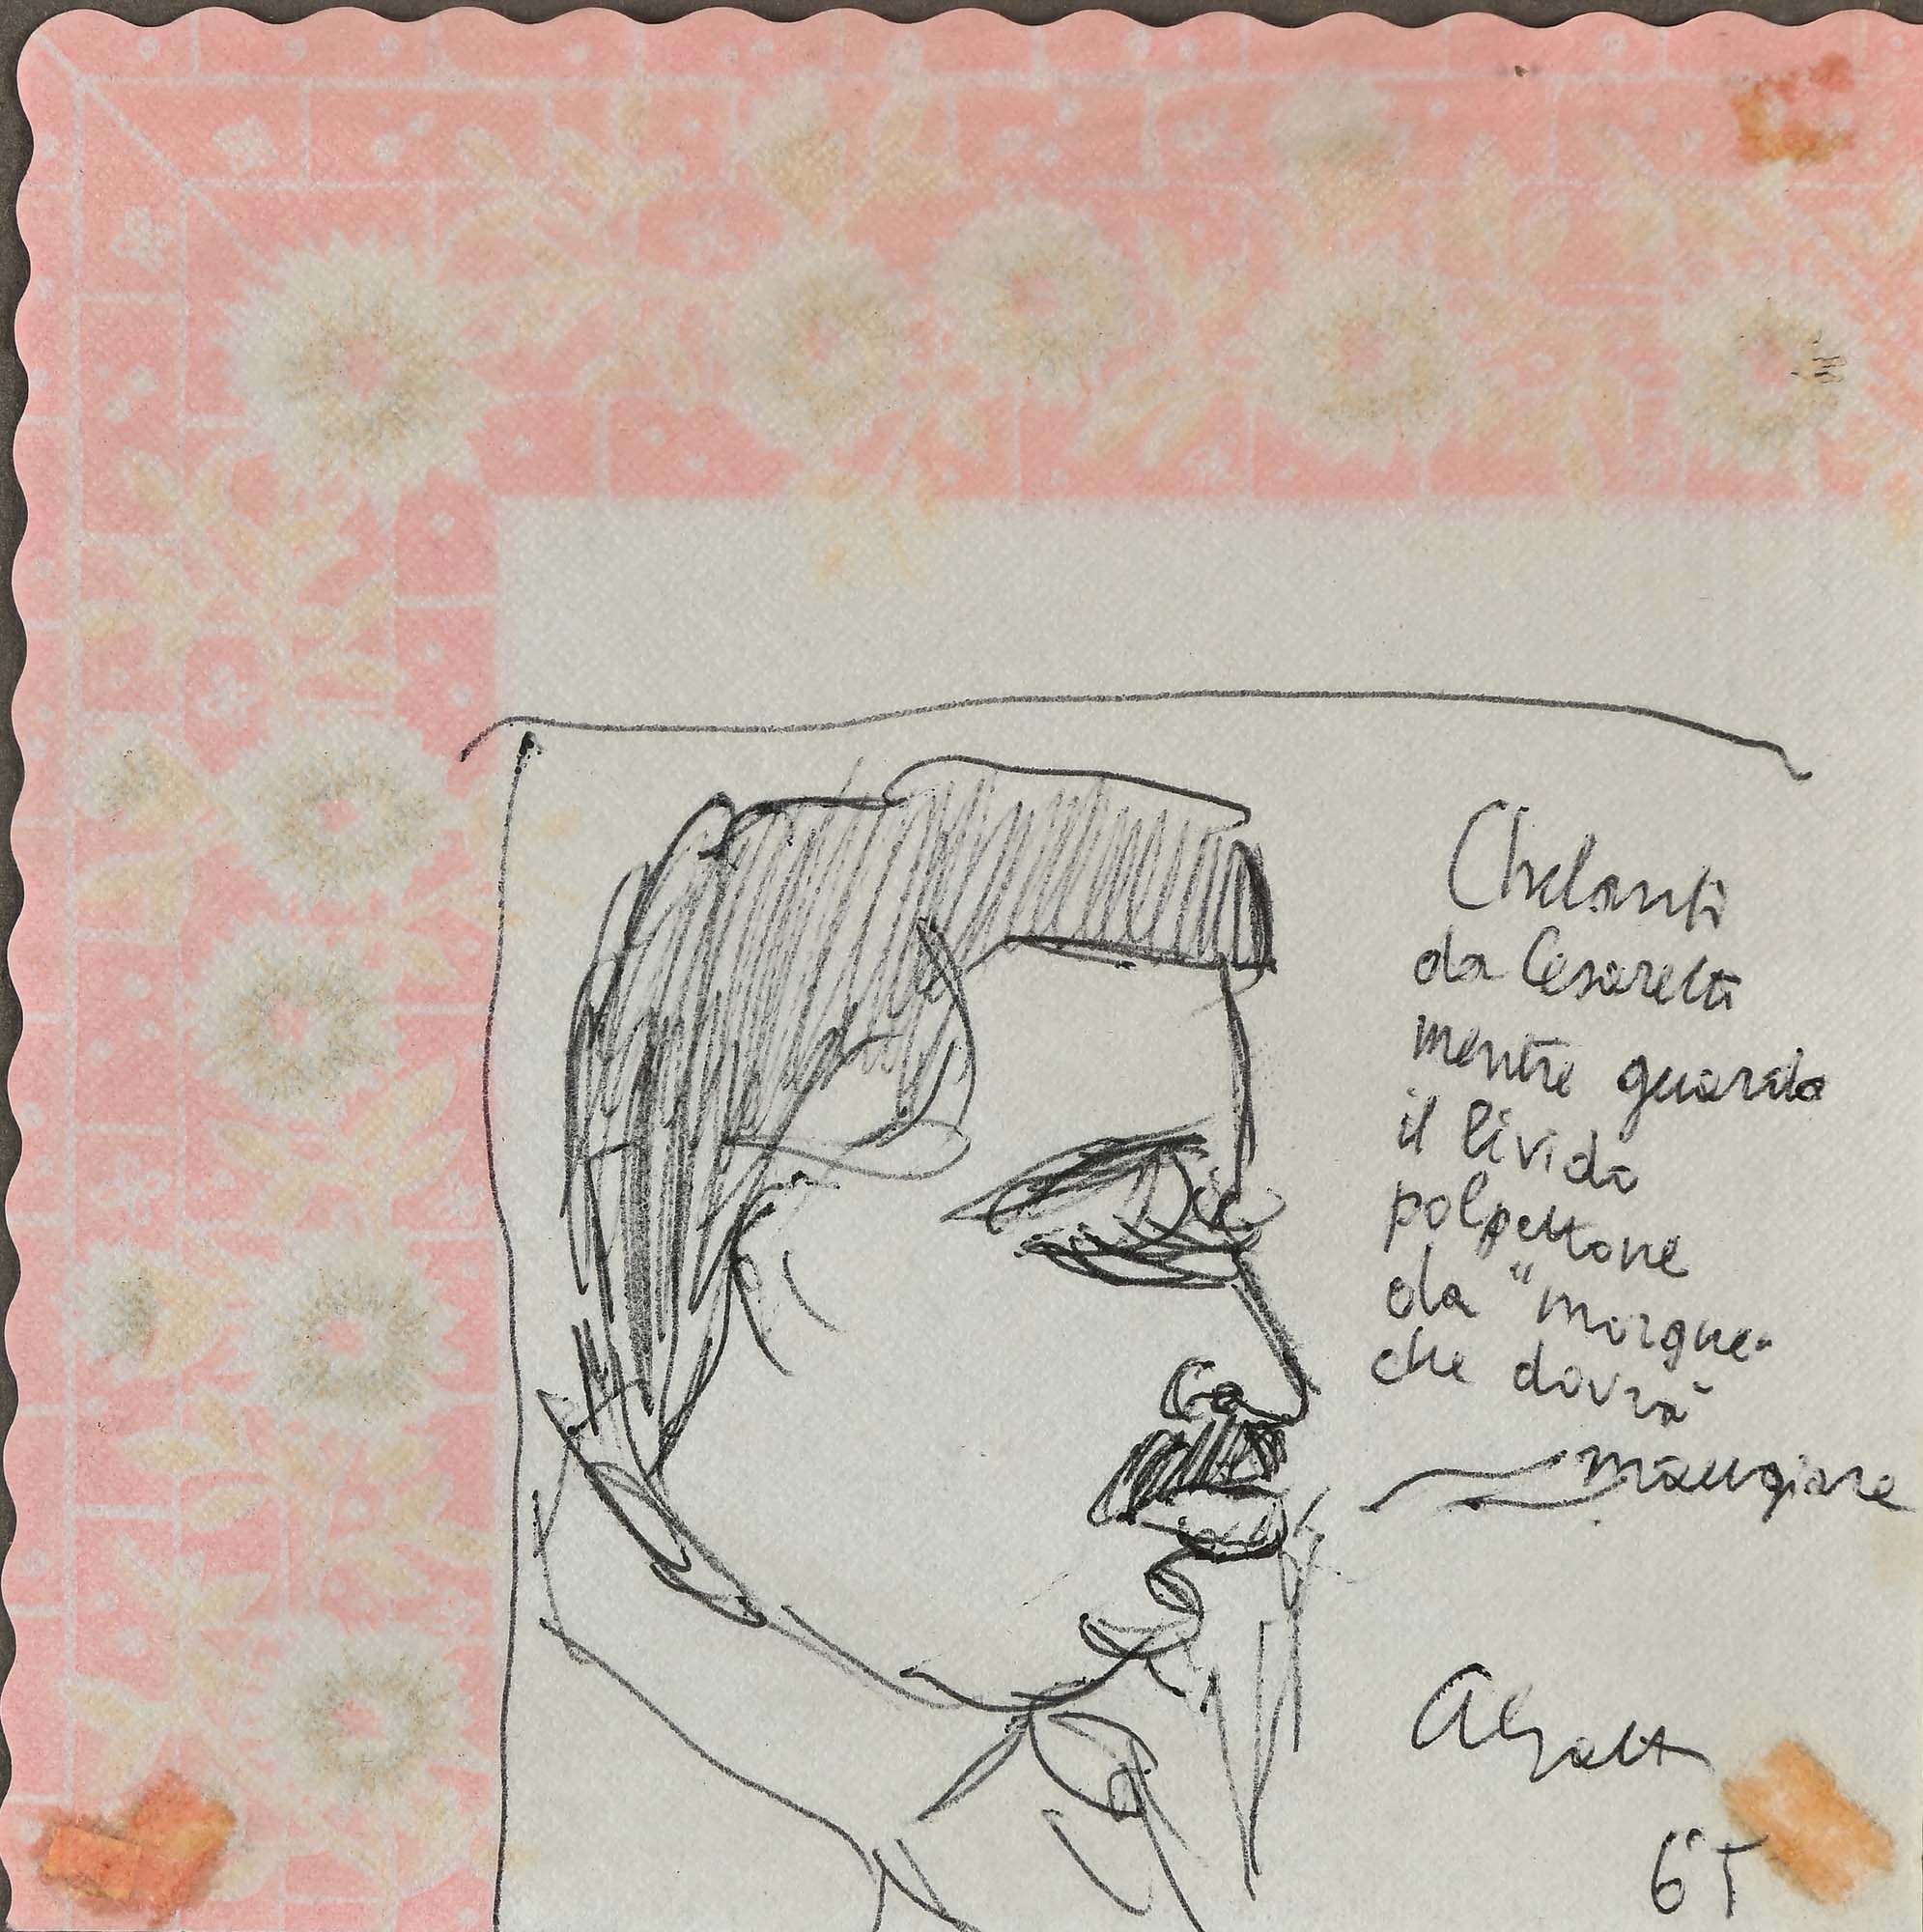 Chelanti
da Cesaretti
mentre guarda
il livido
polpettone
da "morgue"
che dovrà
mangiare
65